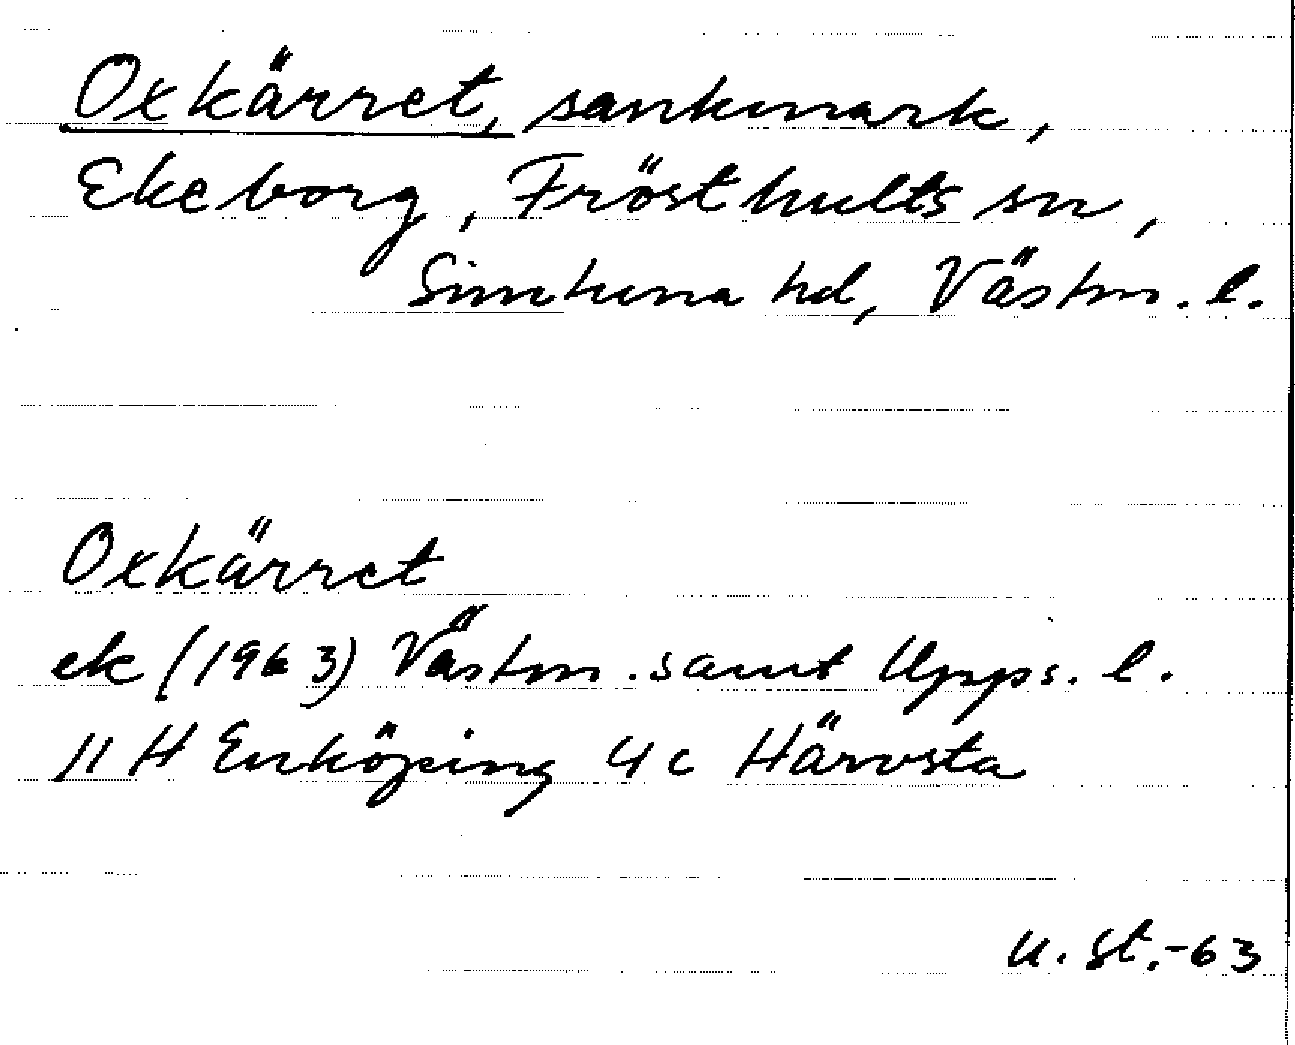 Oxkärret, sankmark,
Ekeborg, Frösthults sn,
Simtuna hd, Västm. l.
Oxkärret
ek (1963) Västm. samt Upps. l.
11 H Enköping 4 c Härvsta
u. st.-63